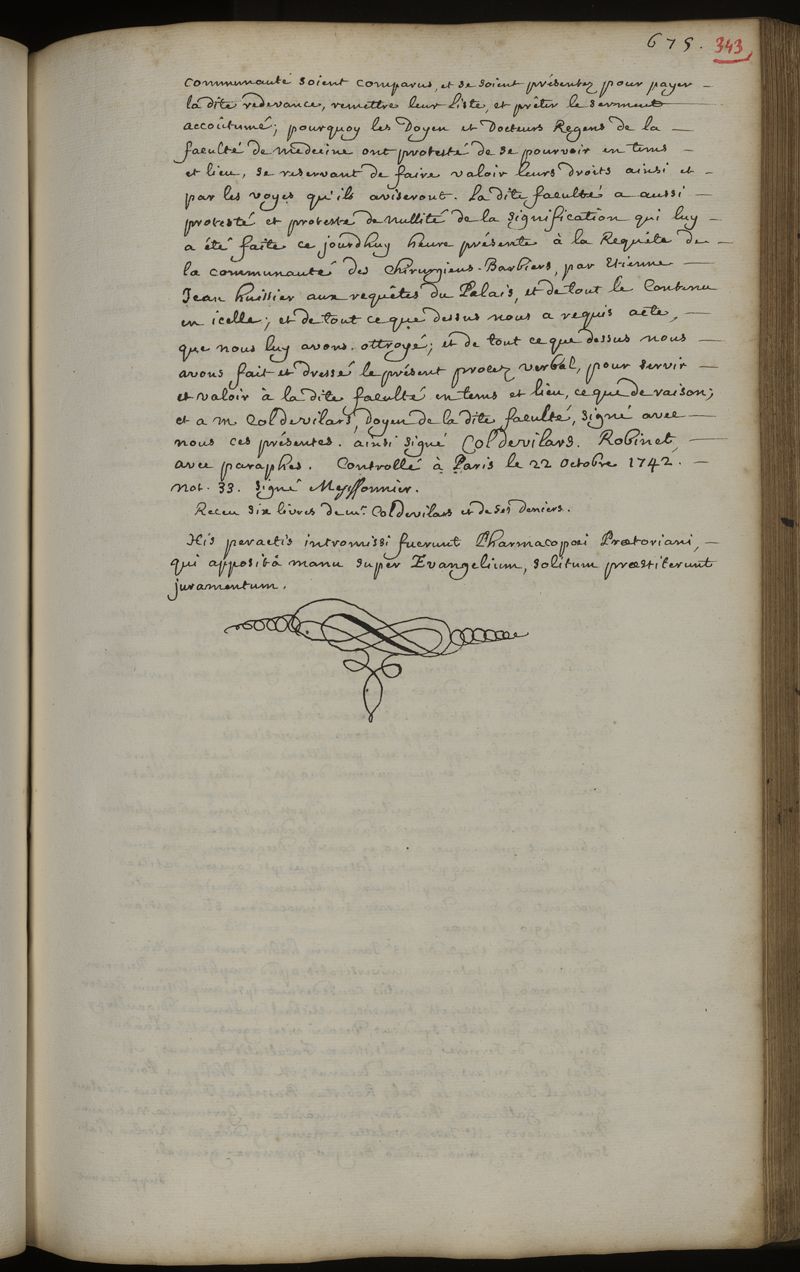 675. 343
communauté soient comparus, et se soient présentez pour payer
la dite redevance, remettre leur Liste, et prêter le serment
accoûtumé; pourquoy les Doyen et Docteurs Regens de la
faculté de medecine ont protesté de se pourvoir en tems
et lieu, se reservant de faire valoir leurs droits ainsi et
par les voyes qu'ils aviseront. La dite faculté a aussi
protesté et proteste de nullité de la signification qui luy
a été faite ce jourdhuy heure présente à la Requête de
la communauté des Chirurgiens-Barbiers, par Etienne
Jean huissier aux requêtes du Palais, et de tout le Contenu
en icelle; et de tout ce que dessus nous a requis acte,
que nous luy avons ottroyé; et de tout ce que dessus nous
avons fait et dressé le présent procez verbal, pour servir
et valoir à la dite faculté en tems et lieu, ce que de raison;
et a m Coldevilars, Doyen de la dite faculté, signé avec
nous ces présentes. ainsi signé Coldevilars. Robinet,
avec paraphes. Controllé à Paris le 22 octobre 1742.
not. 33. signé Meyssonnier.
Receu six livres de mr. Coldevilars et de ses deniers.
His peractis intromissi fuerunt Pharmacopoei Praetoriani,
qui apposità manu super Evangelium, solitum praestiterunt
juramentum.